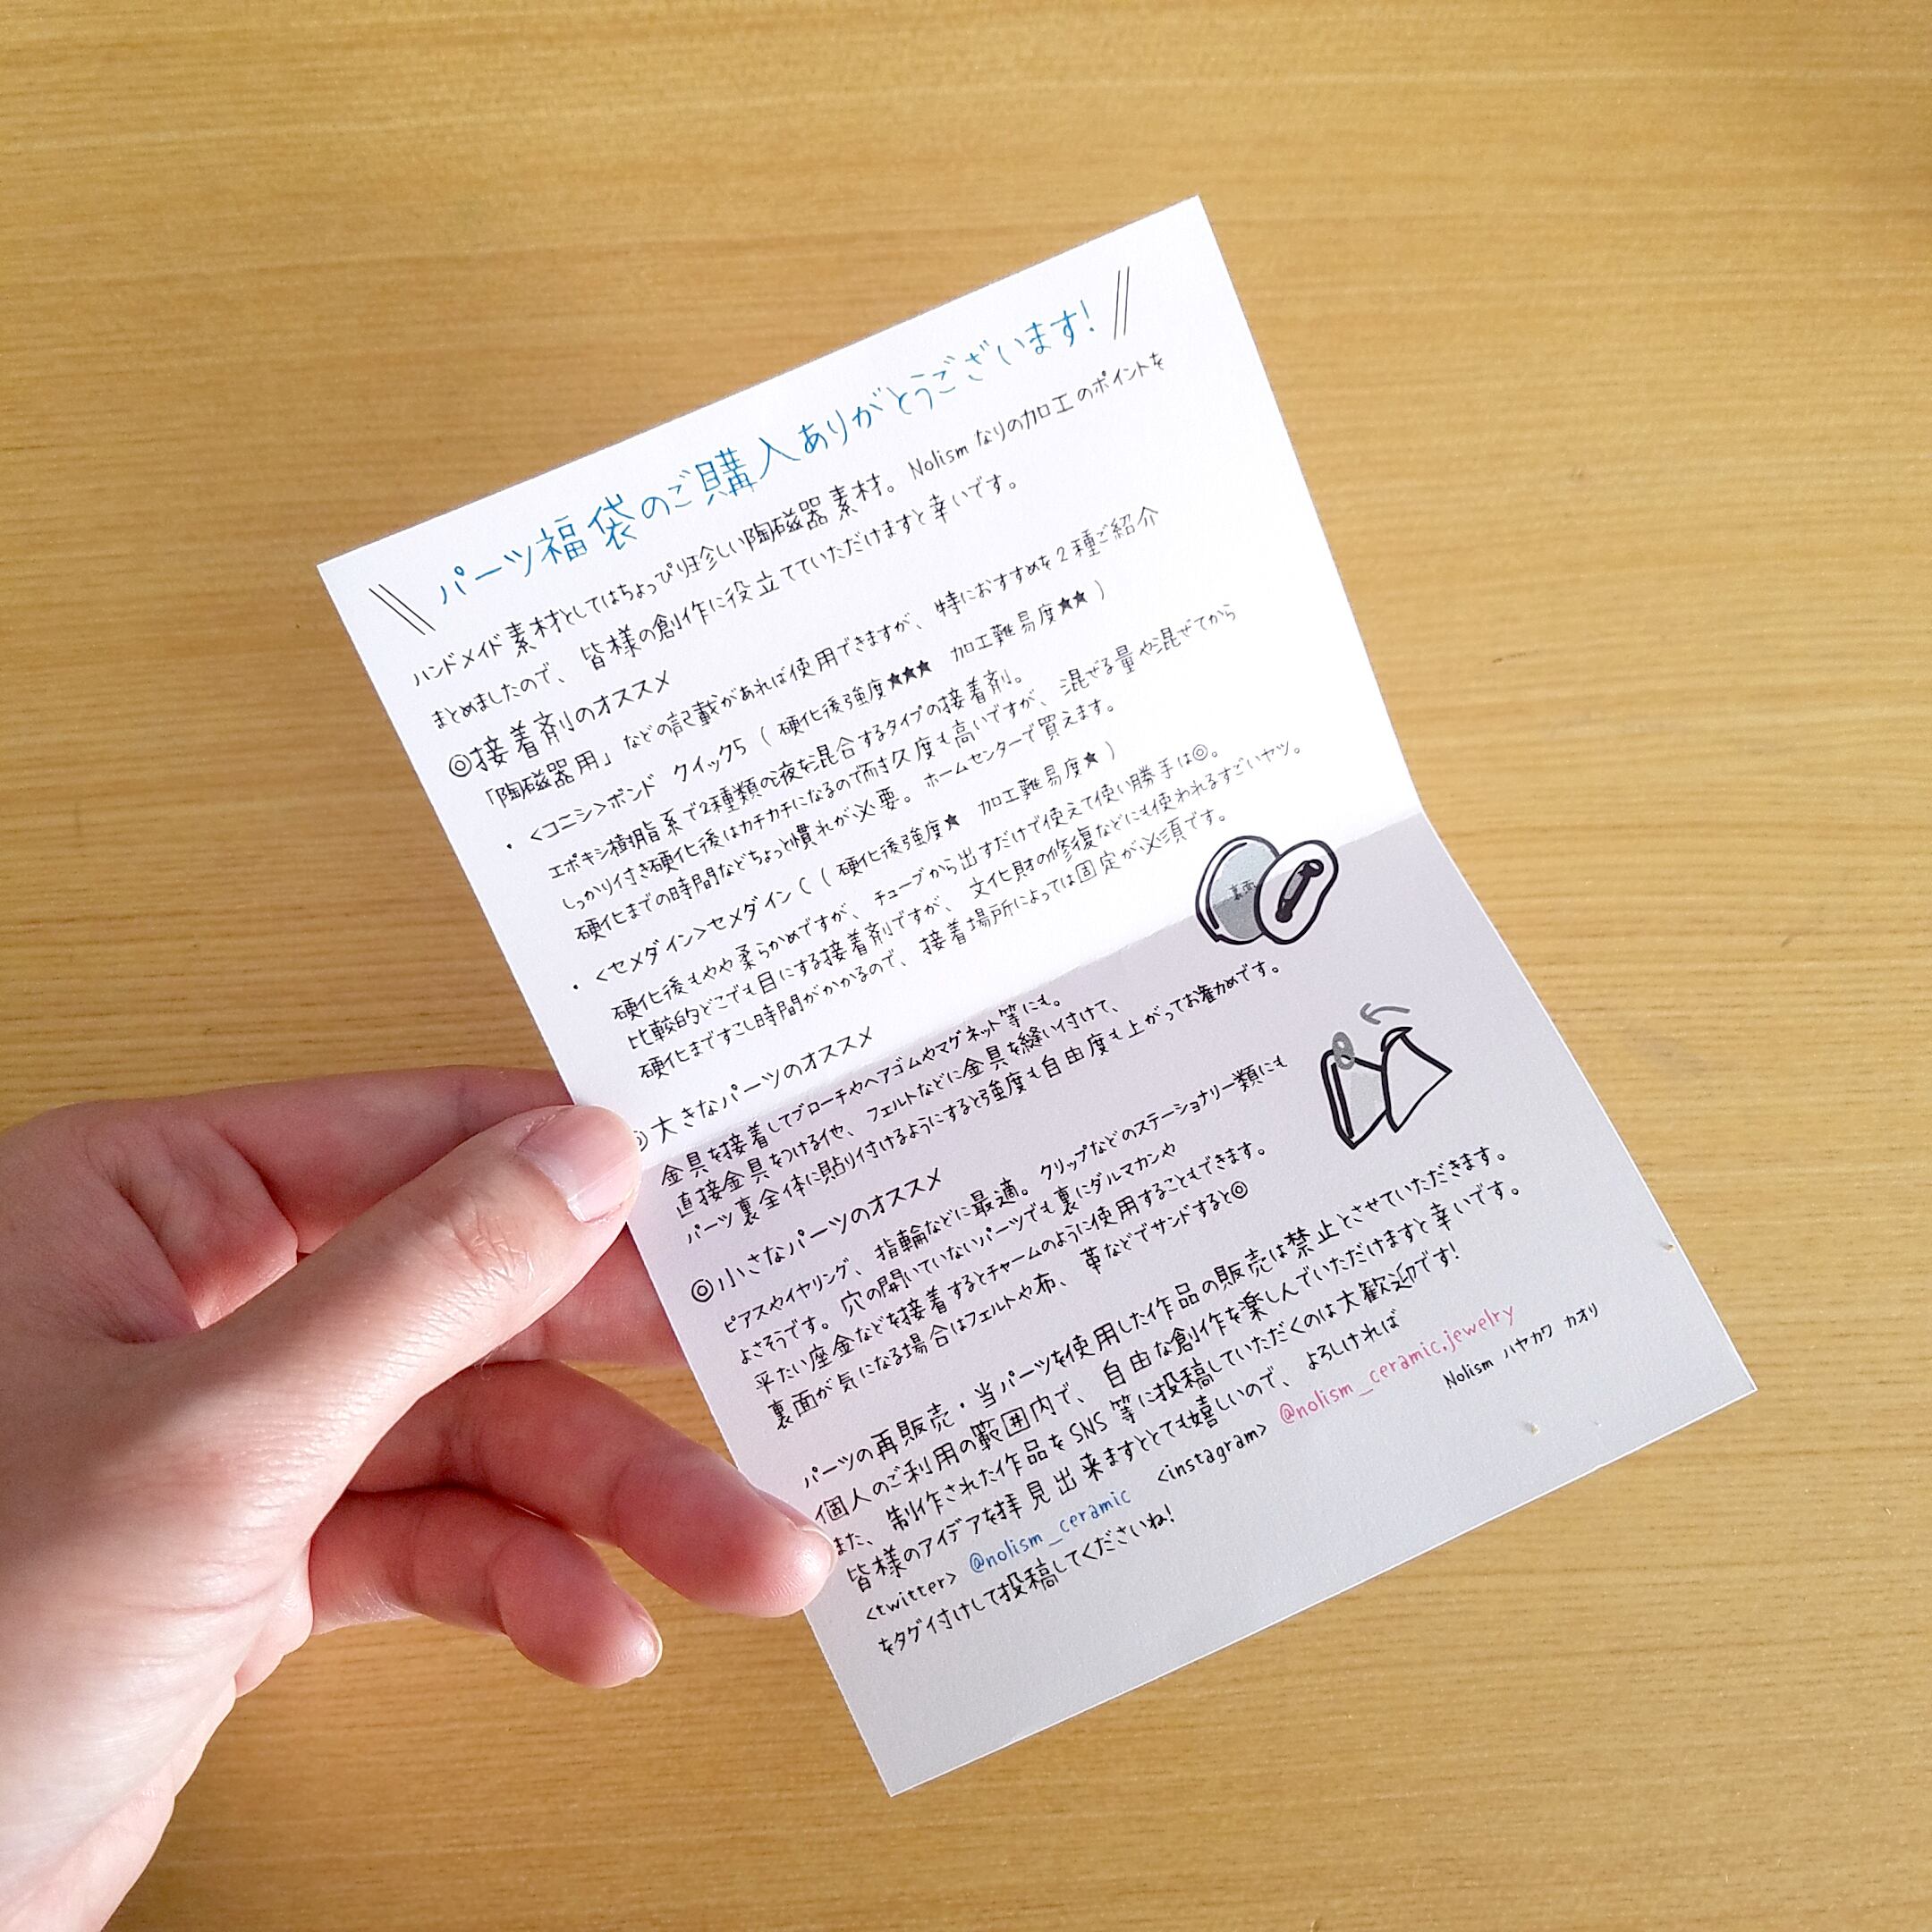 パーツ福袋のご購入ありがとうございます!
ハンドメイド素材としてはちょっぴり珍しい陶磁器素材。Nolismなりの加工のポイントを
まとめましたので、皆様の創作に役立てていただけますと幸いです。
◎接着剤のオススメ
「陶磁器用」などの記載があれば使用できますが、特におすすめを2種ご紹介
・<コニシ>ボンド クイック5 (硬化後強度★★★ 加工難易度★★)
エポキシ樹脂系で2種類の液を混合するタイプの接着剤。
しっかり付き硬化後はカチカチになるので耐久度も高いですが、混ぜる量や混ぜてから
硬化までの時間などちょっと慣れが必要。ホームセンターで買えます。
・<セメダイン>セメダインC (硬化後強度★ 加工難易度★)
硬化後もやや柔らかめですが、チューブから出すだけで使えて使い勝手は◎。
比較的どこでも目にする接着剤ですが、文化財の修復などにも使われるすごいヤツ。
硬化まですこし時間がかかるので、接着場所によっては固定が必須です。
裏面
◎大きなパーツのオススメ
金具を接着してブローチやヘアゴムやマグネット等にも。
直接金具をつける他、フェルトなどに金具を縫い付けて、
パーツ裏全体に貼り付けるようにすると強度も自由度も上がってお勧めです。
◎小さなパーツのオススメ
ピアスやイヤリング、指輪などに最適。クリップなどのステーショナリー類にも
よさそうです。穴の開いていないパーツでも裏にダルマカンや
平たい座金などを接着するとチャームのように使用することもできます。
裏面が気になる場合はフェルトや布、革などでサンドすると◎
パーツの再販売・当パーツを使用した作品の販売は禁止とさせていただきます。
個人のご利用の範囲内で、自由な創作を楽しんでいただけますと幸いです。
また、制作された作品をSNS等に投稿していただくのは大歓迎です!
皆様のアイデアを拝見出来ますととても嬉しいので、よろしければ
<twitter> @nolism_ceramic <instagram> @nolism_ceramic.jewelry
をタグ付けして投稿してくださいね!
Nolism ハヤカワ カオリ